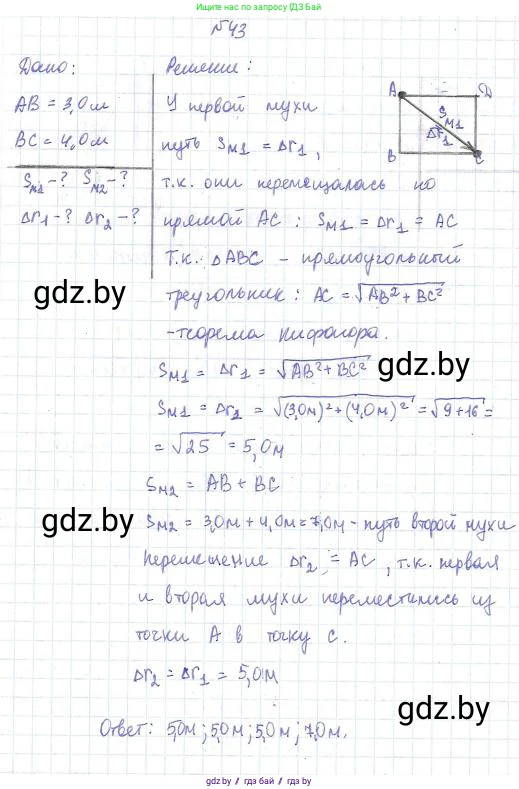 Присоединяйся на решебник по запросу GDZ.BY / ГДЗ БАЙ
№43
Дано:
AB = 3,0 м
BC = 4,0 м
Sм1 - ? Sм2 - ?
Δr1 - ? Δr2 - ?
Решение:
У первой мухи
путь Sм1 = Δr1,
т.к. они перемещалась по
прямой AC: Sм1 = Δr1 = AC
Т.к. ΔABC – прямоугольный
треугольник: AC = √AB² + BC²
- теорема Пифагора.
A D
Sм1
Δr1
B C
Sм1 = Δr1 = √AB² + BC²
Sм1 = Δr2 = √(3,0м)² + (4,0м)² = √9 + 16 =
= √25 = 5,0м
Sм2 = AB + BC
Sм2 = 3,0м + 4,0м = 7,0м - путь второй мухи
Перемещение Δr2 = AC, т.к. первая
и вторая мухи переместились из
точки A в точку C.
Δr2 = Δr1 = 5,0м
Ответ: 5,0м; 5,0м; 5,0м; 7,0м.
gdz.by
gdz.by
gdz.by
gdz.by
gdz.by / гдз бай / гдз.by